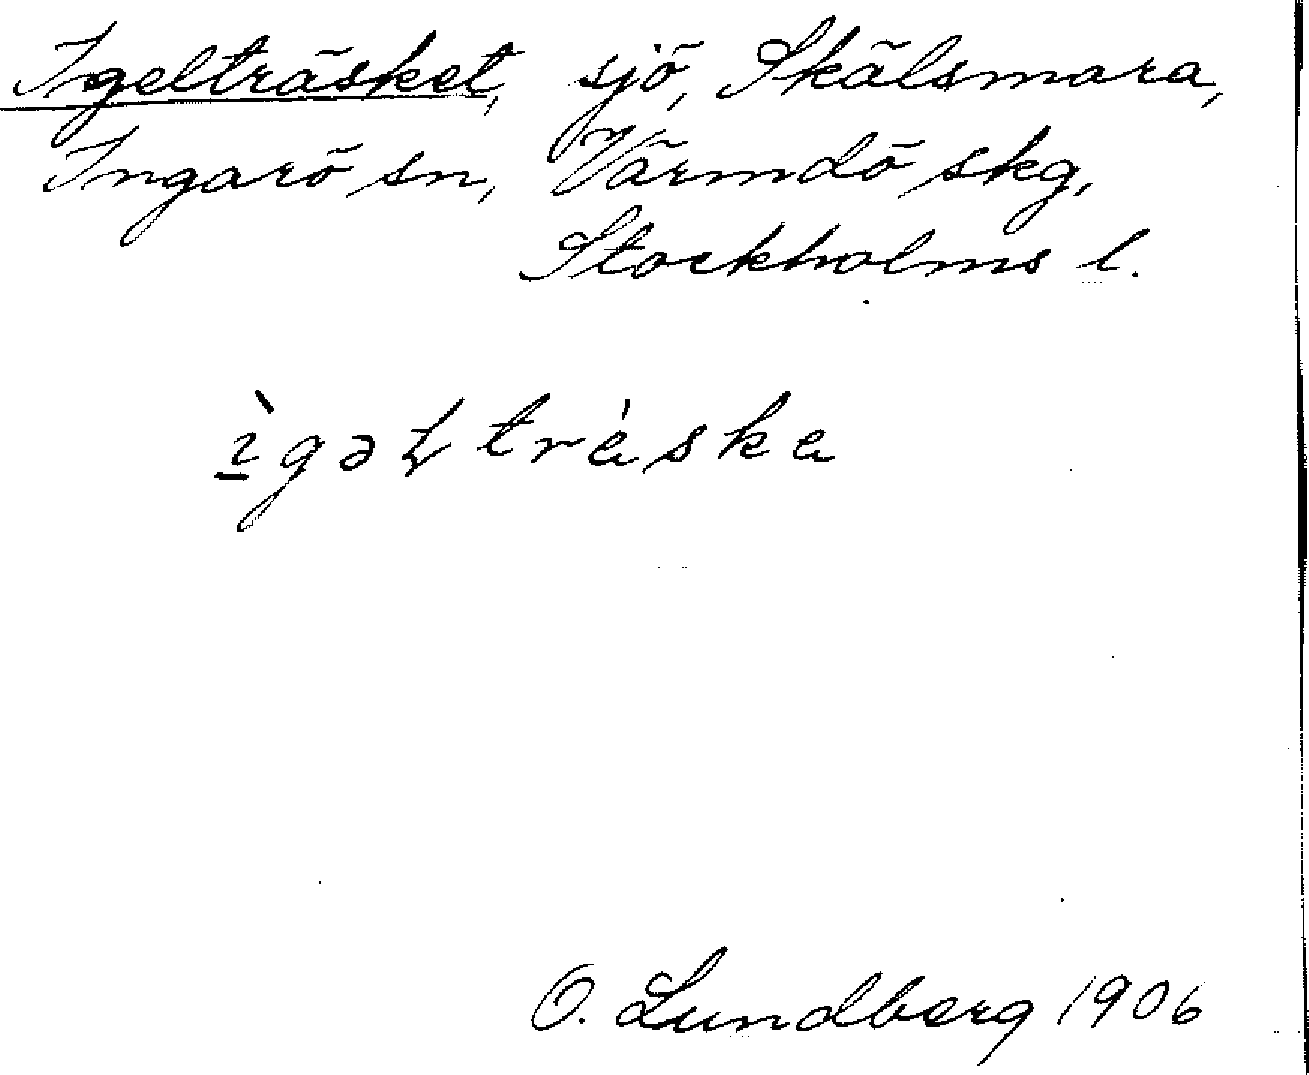 Igelträsket, sjö, Skälsmara,
Ingarö sn, Värmdö skg,
Stockholms l.
ìgəɫtráska
O. Lundberg 1906